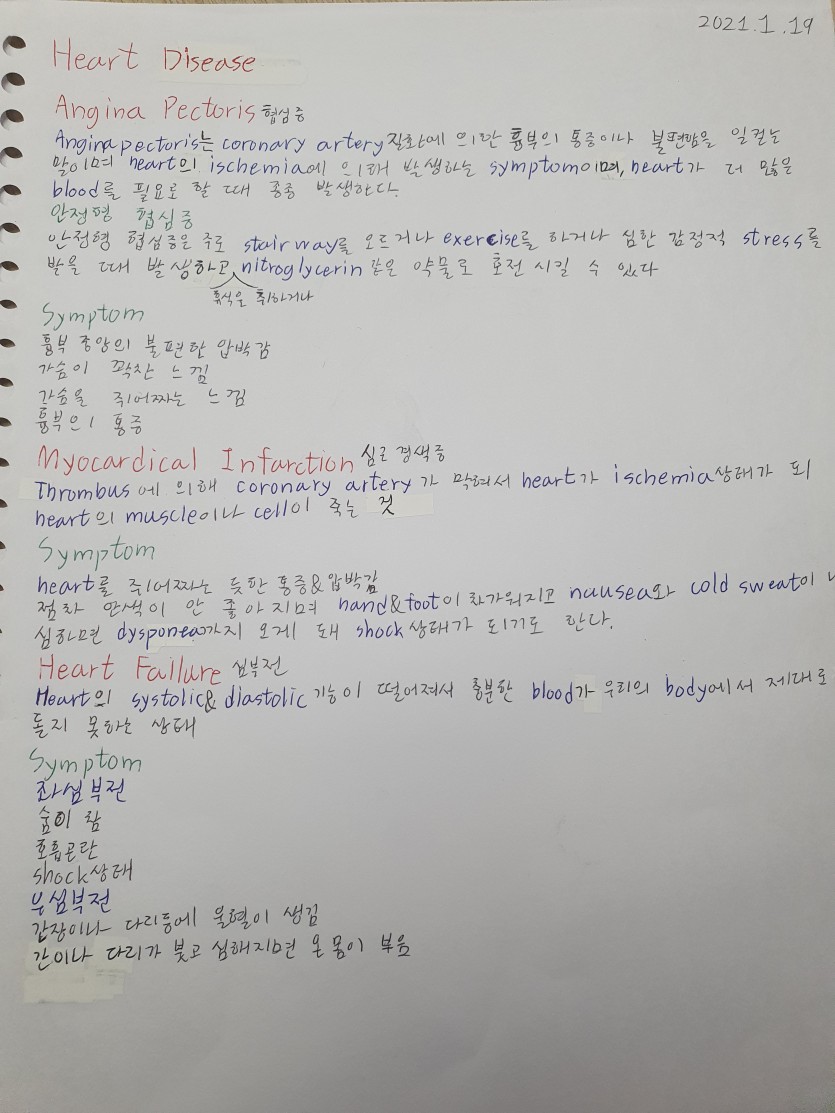 2021.1.19
Heart Disease
Angina Pectoris 협심증
Angina pectoris는 coronary artery 질환에 의한 흉부의 통증이나 불편함을 일컫는
말이며 heart의 ischemia에 의해 발생하는 symptom이며, heart가 더 많은
blood를 필요로 할 때 종종 발생한다.
안정형 협심증
안정형 협심증은 주로 stairway를 오르거나 exercise를 하거나 심한 감정적 stress를
받을 때 발생하고 nitroglycerin 같은 약물로 호전 시킬 수 있다
휴식을 취하거나
Symptom
흉부 중앙의 불편한 압박감
가슴이 꽉찬 느낌
가슴을 쥐어짜는 느낌
흉부의 통증
Myocardical Infarction 심근경색증
Thrombus에 의해 coronary artery가 막혀서 heart가 ischemia상태가 되
heart의 muscle이나 cell이 죽는 것
Symptom
heart를 쥐어짜는 듯한 통증&압박감
점차 안색이 안 좋아지며 hand&foot이 차가워지고 nausea와 cold sweat이
심하면 dysponea까지 오게 돼 shock상태가 되기도 한다.
Heart Failure 심부전
Heart의 systolic& diastolic 기능이 떨어져서 충분한 blood가 우리의 body에서 제대로
돌지 못하는 상태
Symptom
좌심부전
숨이 참
호흡곤란
shock상태
우심부전
갑장이나 다리등에 울혈이 생김
간이나 다리가 붓고 심해지면 온 몸이 부음